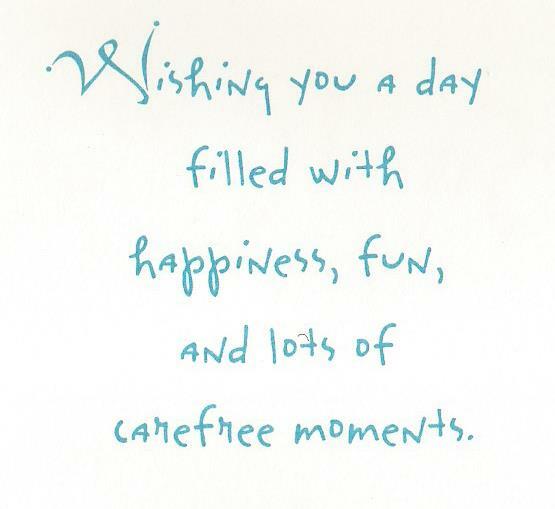 Wishing you a day
filled with
happiness, fun,
and lots of
carefree moments.